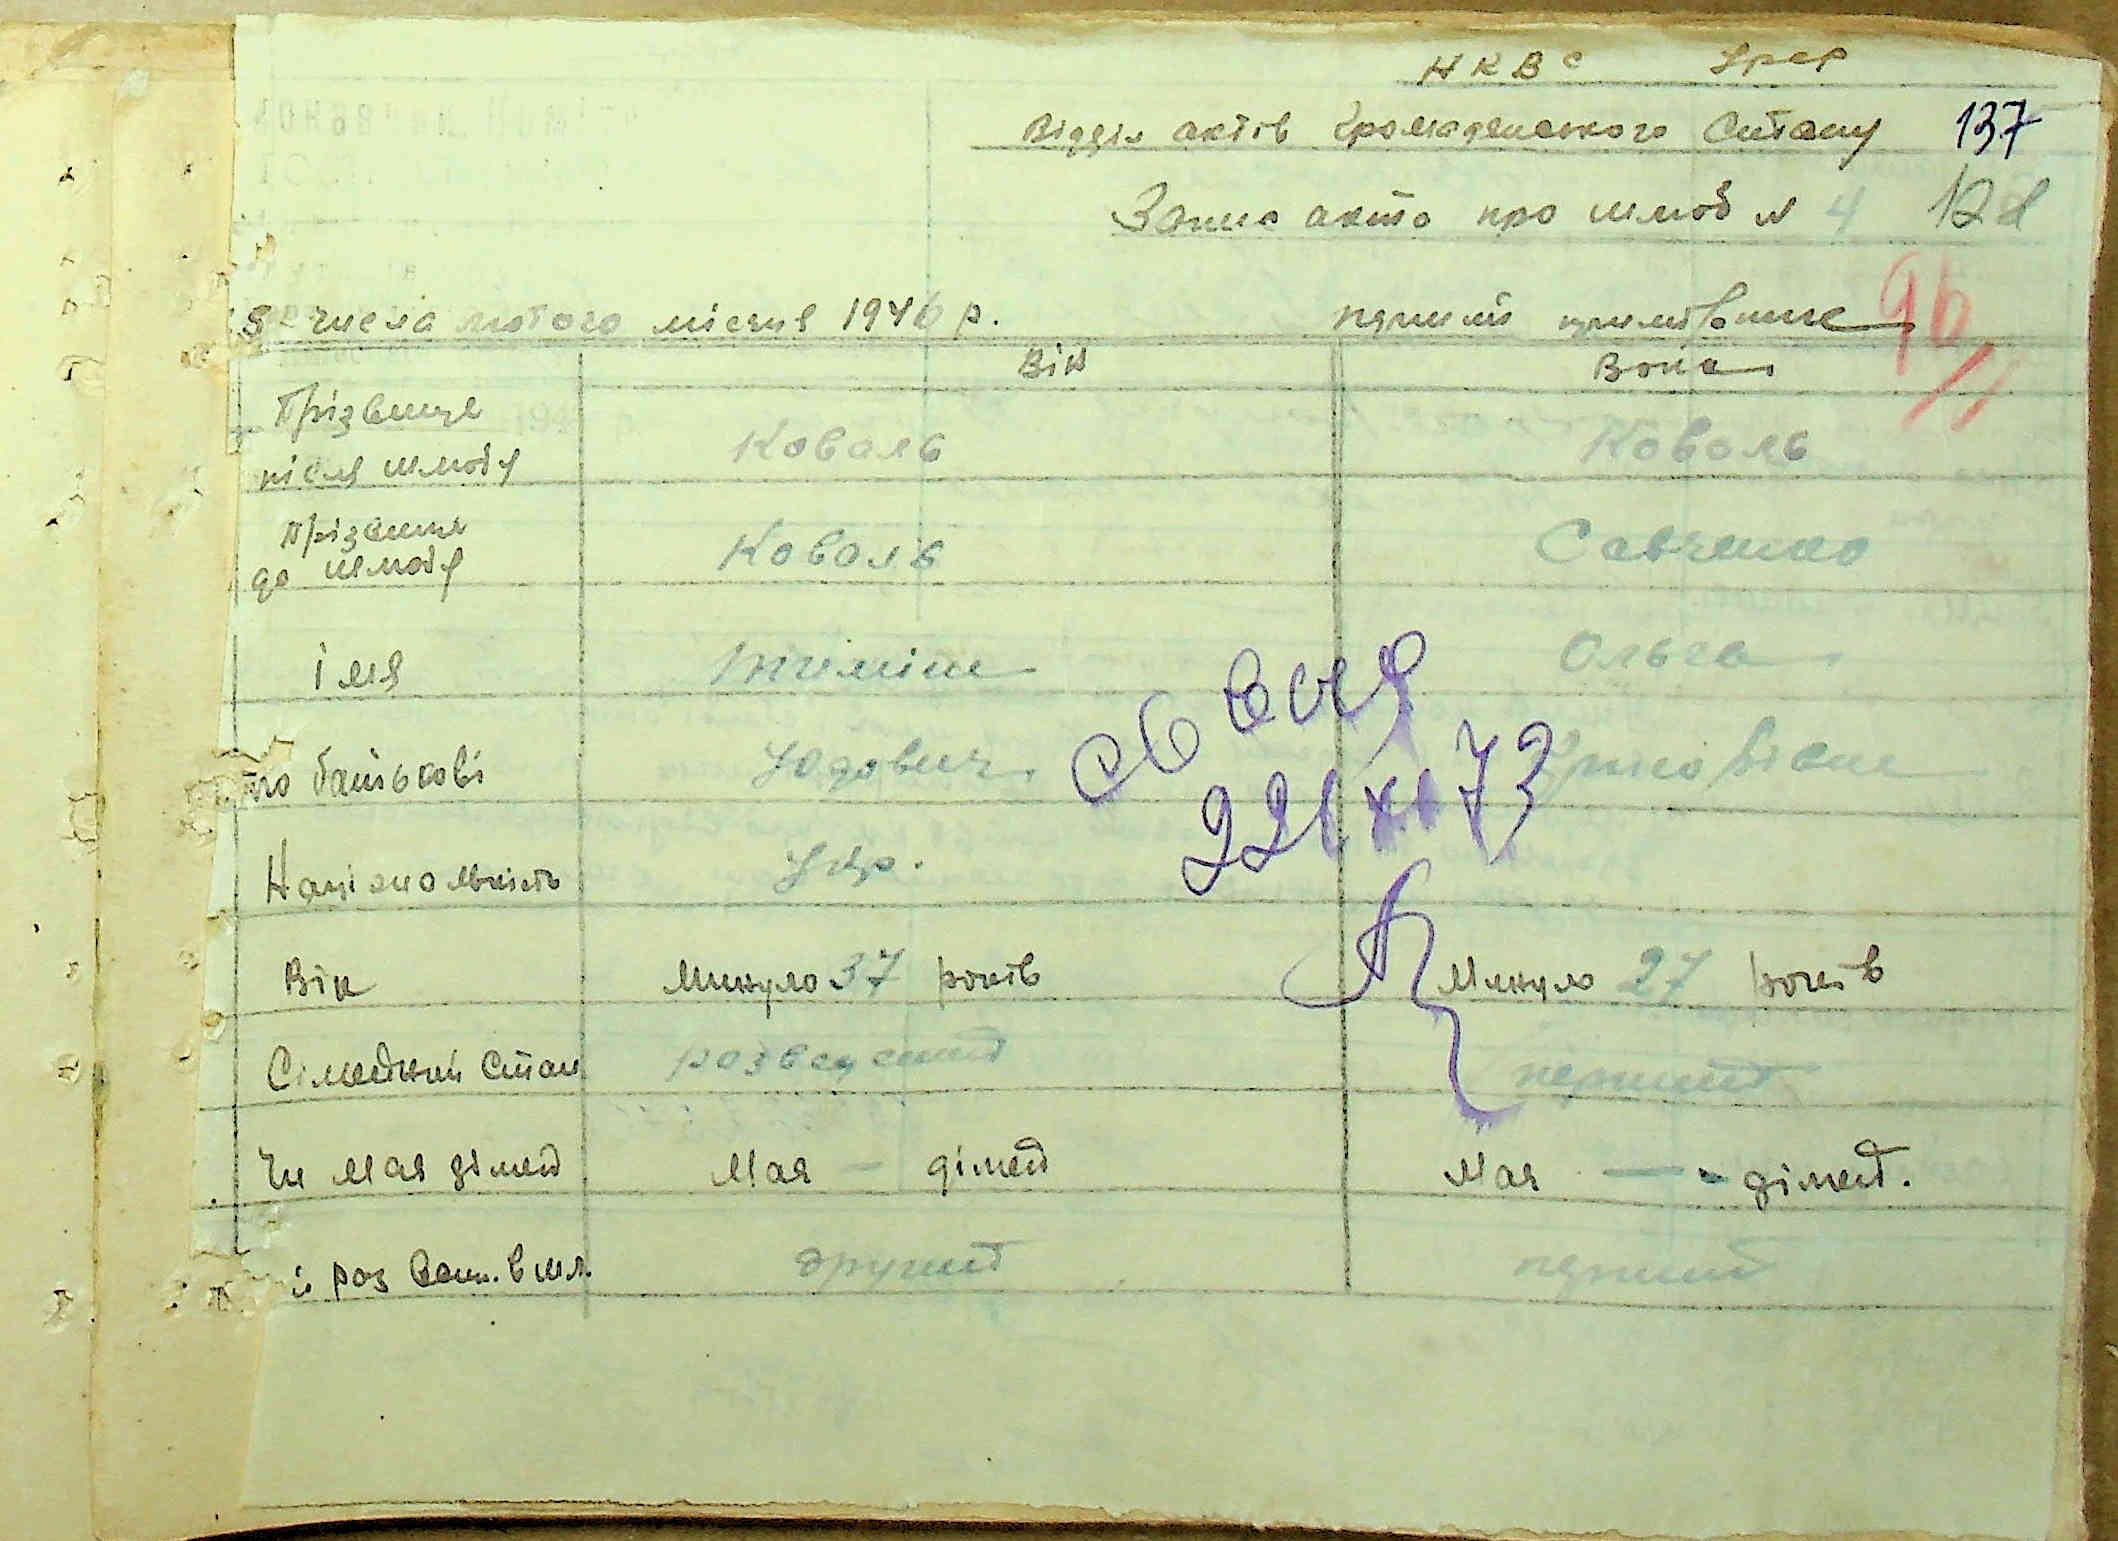 НКВС УРСР
Відділ актів Громадянського Стану 137
Запис акта про шлюб № 4 128
96
8 числа лютого місяця 1946 р. перший примірник
Він Вона
Прізвище
після шлюбу Коваль Коваль
Прізвище
до шлюбу Коваль Савченко
Імя Ольга
по батькові Юдович
св выд
22/XI 73
Національність Укр.
Вік Минуло 37 років Минуло 27 років
Сімейний Стан розведений перший
Чи має дітей Має — дітей Має — дітей.
й раз вст. в шл. другий перший